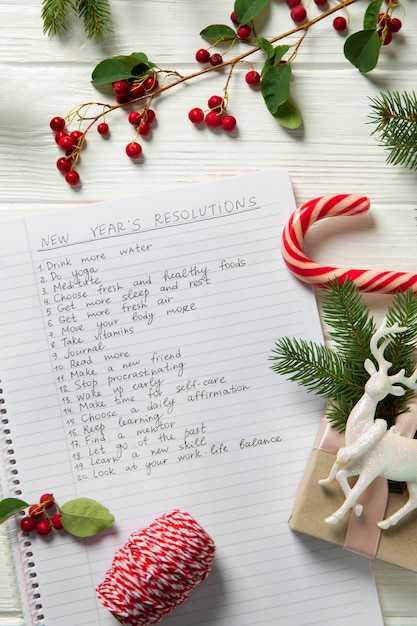 NEW YEAR'S RESOLUTIONS
1. Drink more water
2. Do yoga
3. Meditate
4. Choose fresh and healthy foods
5. Get more sleep and rest
6. Get more fresh air
7. Move your body more
8. Take vitamins
9. Journal
10. Read more
11. Make a new friend
12. Stop procrastinating
13. Wake up early
14. Make time for self-care
15. Choose a daily affirmation
16. Keep learning
17. Find a mentor
18. Let go of the past
19. Learn a new skill
20. Look at your work-life balance